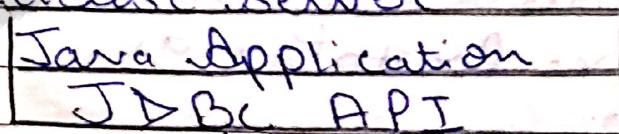 Java Application
JDBC API